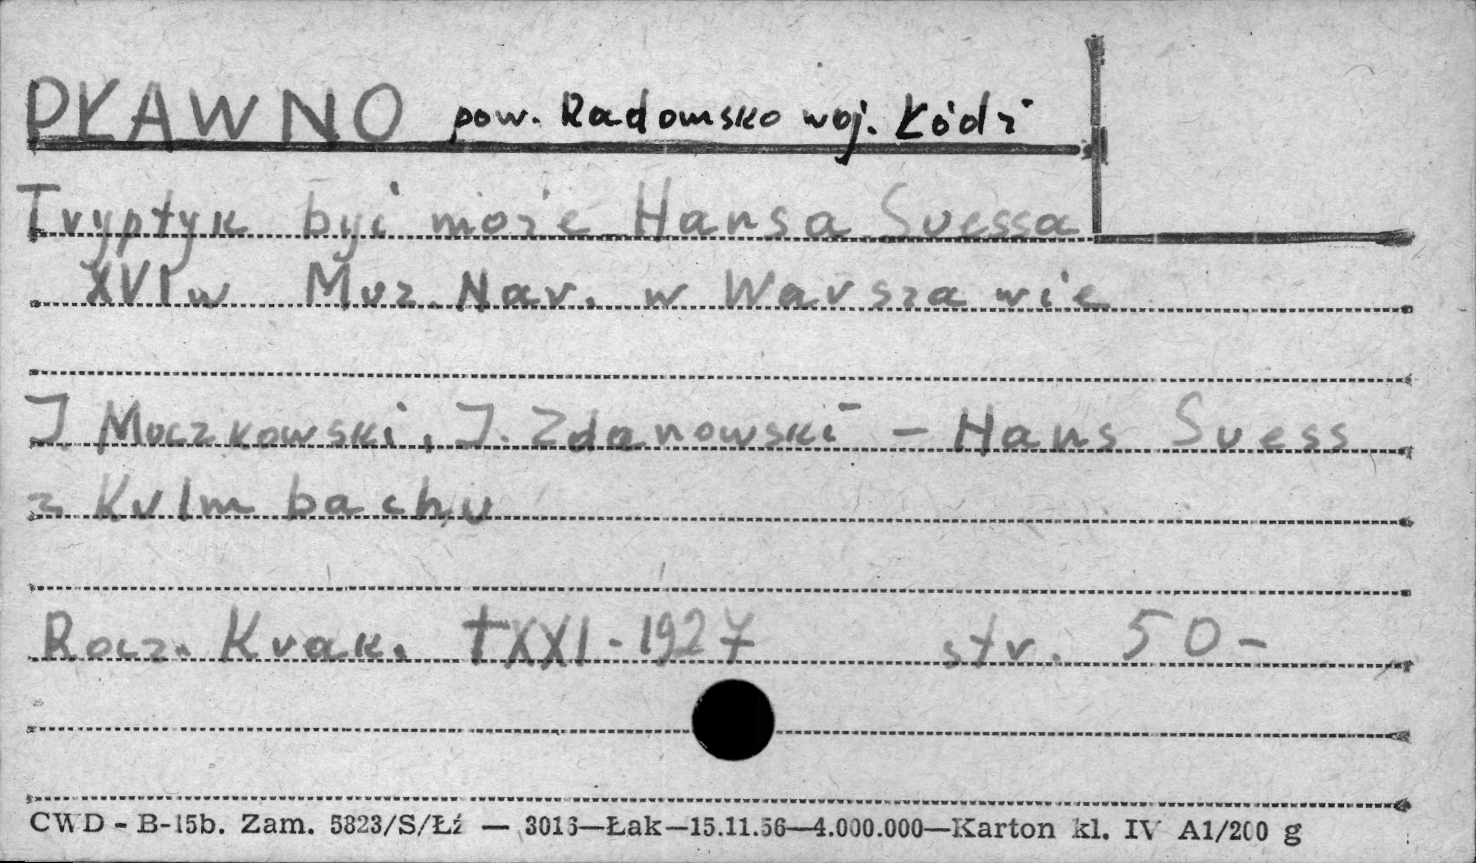 PŁAWNO pow. Radomsko woj. Łódź
Tryptyk być może Hansa Suessa
XVI w Muz. Nar. w Warszawie
J Muczkowski, J. Zdanowski – Hans Suess
z Kulmbachu
Rocz. Krak. t XXI - 1927 str. 50 –
CWD - B-15b. Zam. 5823/S/Łź — 3016—Łak—15.11.56—4.000.000—Karton kl. IV A1/200 g